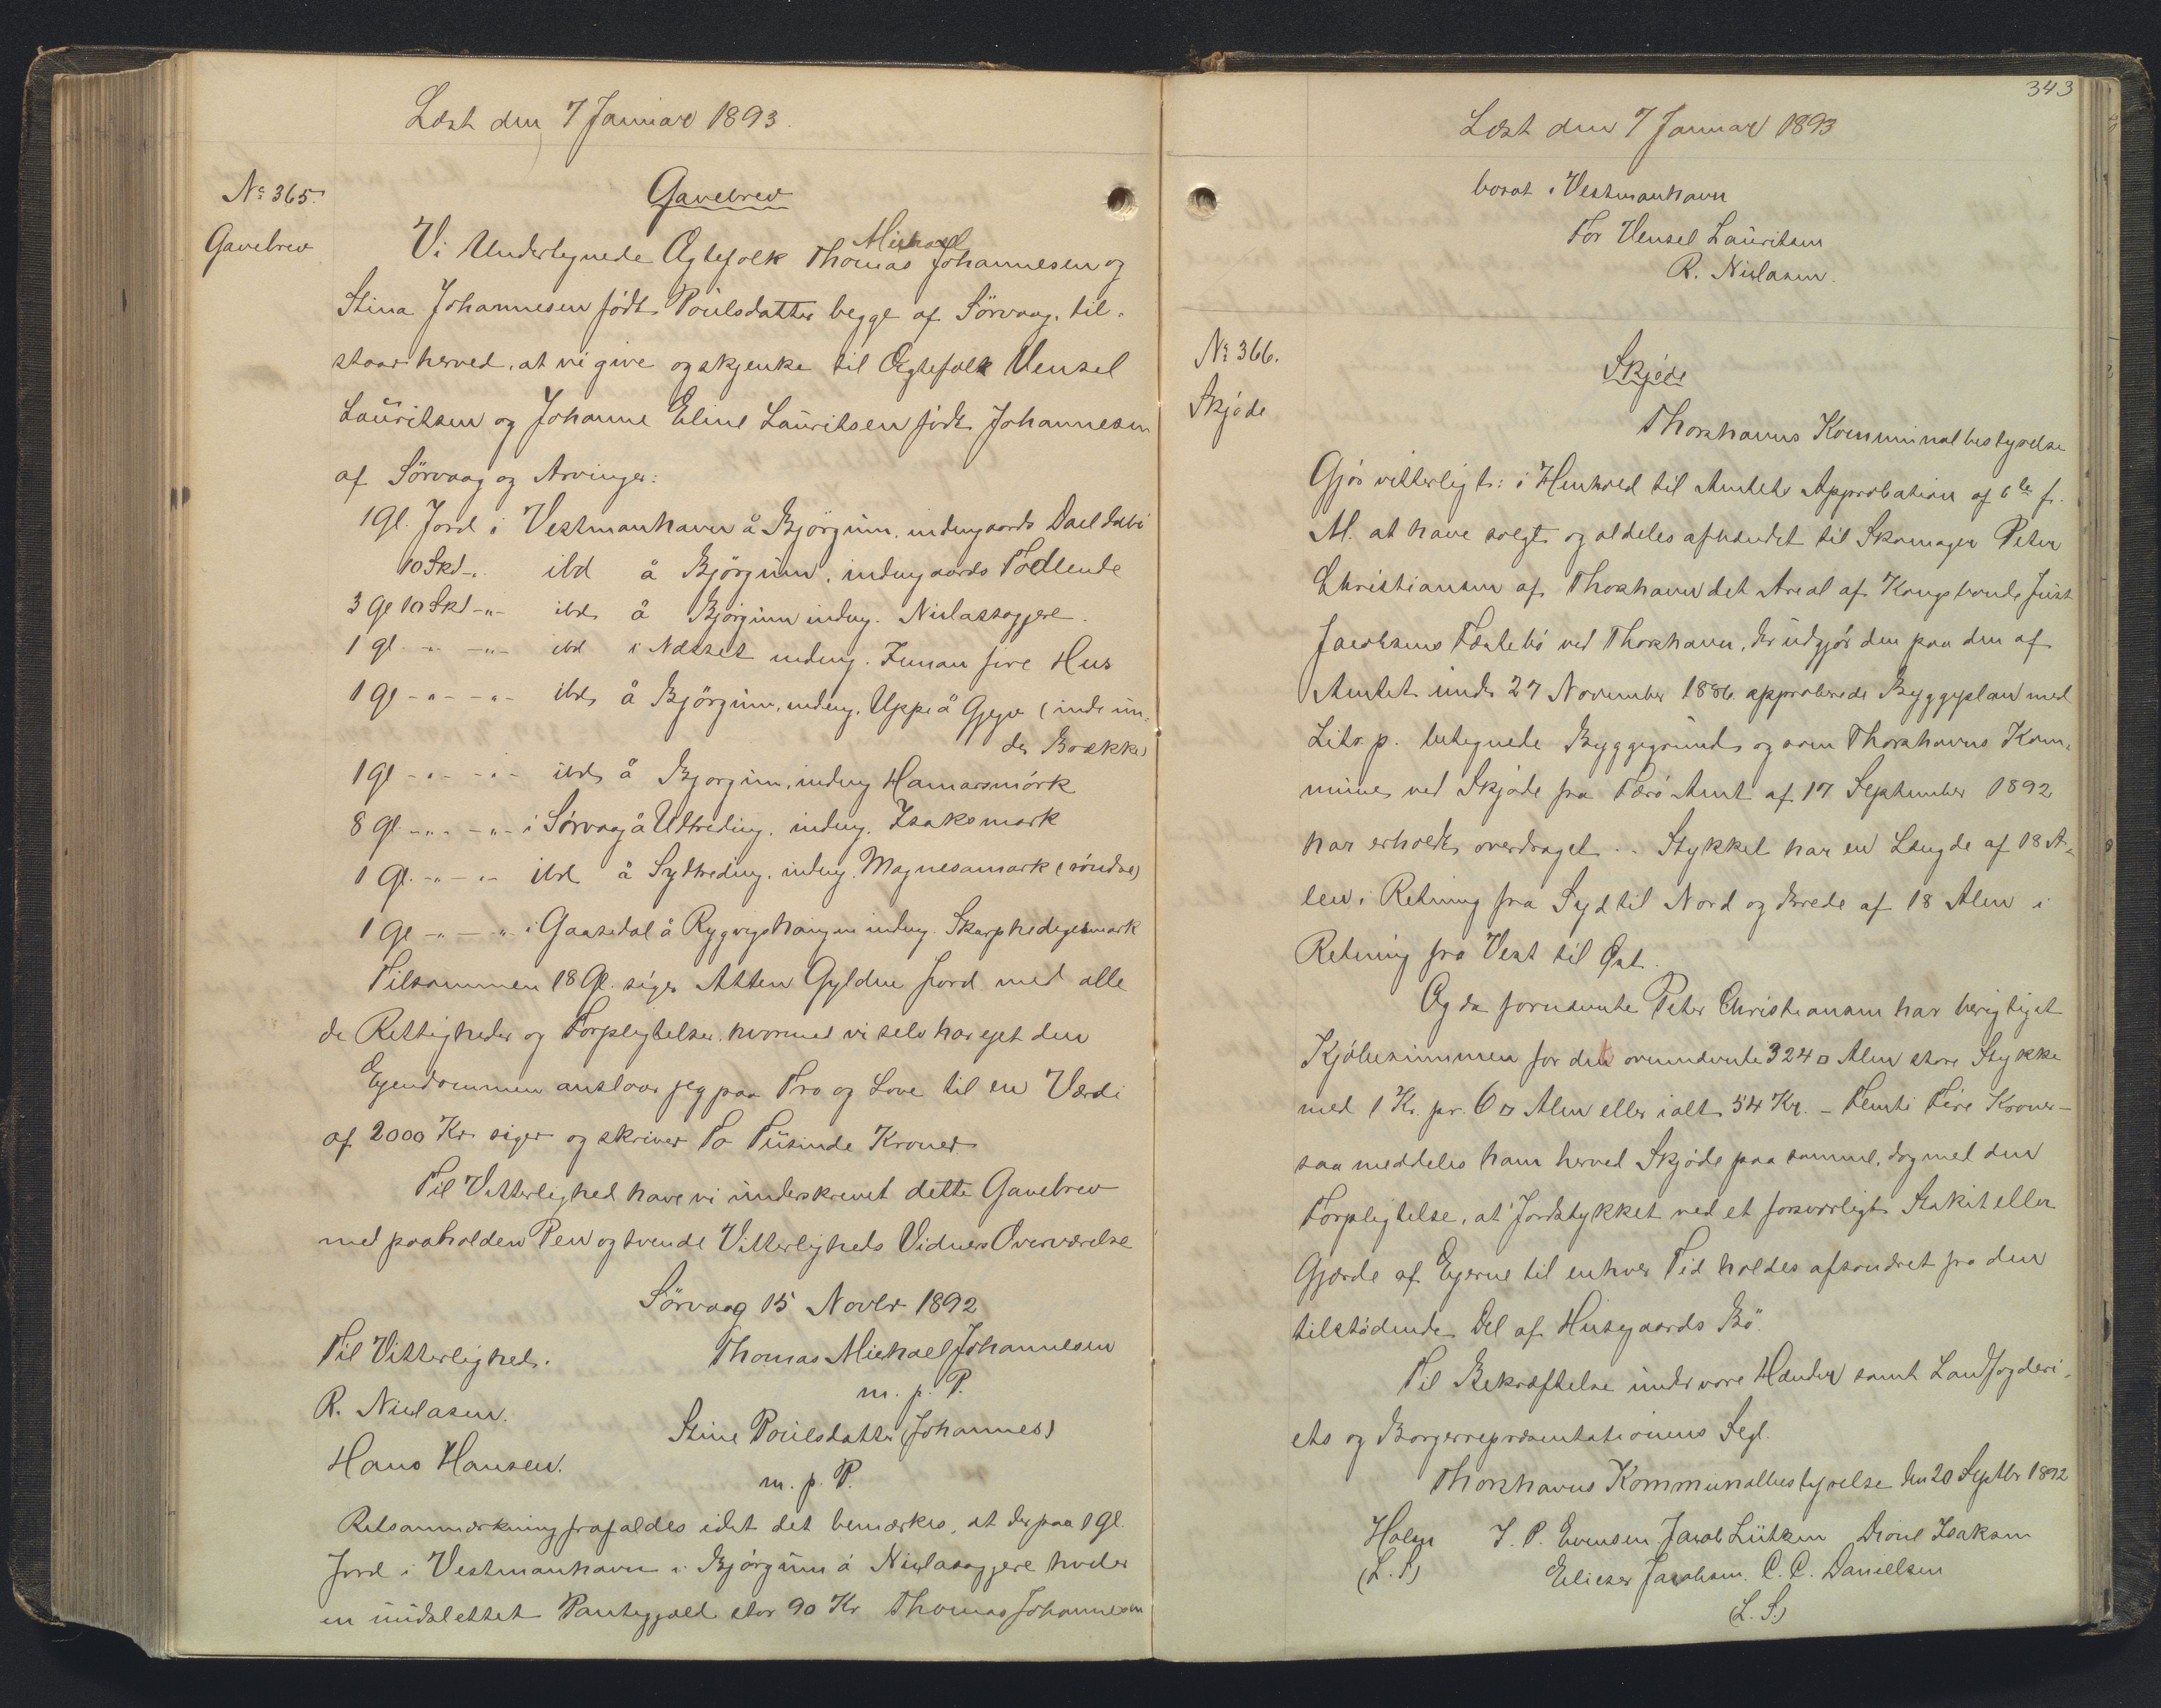 Læst den 7 Januar 1893.
No 365.
Gavebrev
Gavebrev
Vi Undertegnede Ægtefolk Thomas Michael Johannesen og
Stina Johannesen født Poulsdatter begge af Sörvaag, til-
staar herved, at vi give og skjenke til Ægtefolk Vensel
Lauritsen og Johanne Eline Lauritsen födt Johannesen
af Sörvaag og Arvinger:
1 Gl. Jord i Vestmanhavn å Björgum, indengaards
10 Skd -"- ibd å Björgum, indengaards
3 Gl 10 Skd -"- ibd å Björgum indeng. Niclasagjere.
1 Gl. -"- -"- ibd i Nesset indeng. Innan fire Hus
1 Gl -"- -"- ibd å Björgum, indeng. Uppe å Gjeyv (inde un-
der Brekke)
1 Gl -"- -"- ibd å Bjorgum, indeng Hamarsmörk
8 Gl -"- -"- i Sörvaag å Uttreding. indeng. Isaksmark
1 Gl. -"- -"- ibd å Sydtreding. indeng. Magnesamark (söndre)
1 Gl -"- -"- i Gaasedal å indeng. Skarphedigesmark
Tilsammen 18 Gl. siger Atten Gylden Jord med alle
de Rettigheder og Forpligtelser, hvormed vi selv har ejet den
Ejendommen anslaar jeg paa Tro og Love til en Værdi
af 2000 Kr siger og skriver To Tusinde Kroner
Til Vitterlighed have vi underskrevet dette Gavebrev
med paaholden Pen og tvende Vitterligheds Vidners Overværelse
Sörvaag 15 Novbr 1892
Til Vitterlighed. Thomas Michael Johannesen
m. p. P.
R. Niclasen. Stine Poulsdatter (Johannes)
Hans Hansen. m. p. P.
Retsanmærkning frafaldes idet det bemærkes, at der paa 1 Gl.
Jord i Vestmanhavn i Björgum å Niclasagjere hviler
en uudslettet Pantegjæld stor 90 Kr Thomas Johannesen
343
Læst den 7 Januar 1893
bosat i Vestmanhavn
For Vensel Lauritsen
R. Niclasen.
No 366.
Skjöde
Skjöde
Thorshavns Kommunalbestyrelse
Gjör vitterligt: i Henhold til Amtets Approbation af 6te f.
M. at have solgt og aldeles afhændet til Skomager Peter
Christiansen af Thorshavn det Areal af Kongsbonde Just
Jacobsens Fæstebö ved Thorshavn, der udgjör den paa den af
Amtet under 27 November 1886 approberede Byggeplan med
Litr. p. betegnede Byggegrund og som Thorshavns Kom-
mune ved Skjöde fra Færö Amt af 17 September 1892
har erholdt overdraget. Stykket har en Længde af 18 A-
len i Retning fra Syd til Nord og Brede af 18 Alen i
Retning fra Vest til Öst.
Og da fornævnte Peter Christiansen har berigtiget
Kjöbesummen for det ovennævnte 324 □ Alen store Stykke
med 1 Kr. pr. 6 □ Alen eller ialt 54 Kr. - Femti Fire Kroner -
saa meddeles ham herved Skjöde paa samme, dog med den
Forpligtelse, at Jordstykket ved et forsvarligt Stakit eller
Gjærde af Ejerne til enhver Tid holdes afsondret fra den
tilstödende Del af Husgaards Bö.
Til Bekræftelse under vore Hænder samt Landfogderi-
ets og Borgerrepræsentationens Segl.
Thorshavns Kommunalbestyrelse den 20 Septbr 1892
Holm J. P. Evensen Jacob Lützen Isaksen
(L. S.) Elieser Jacobsen. C. C. Danielsen
(L. S.)